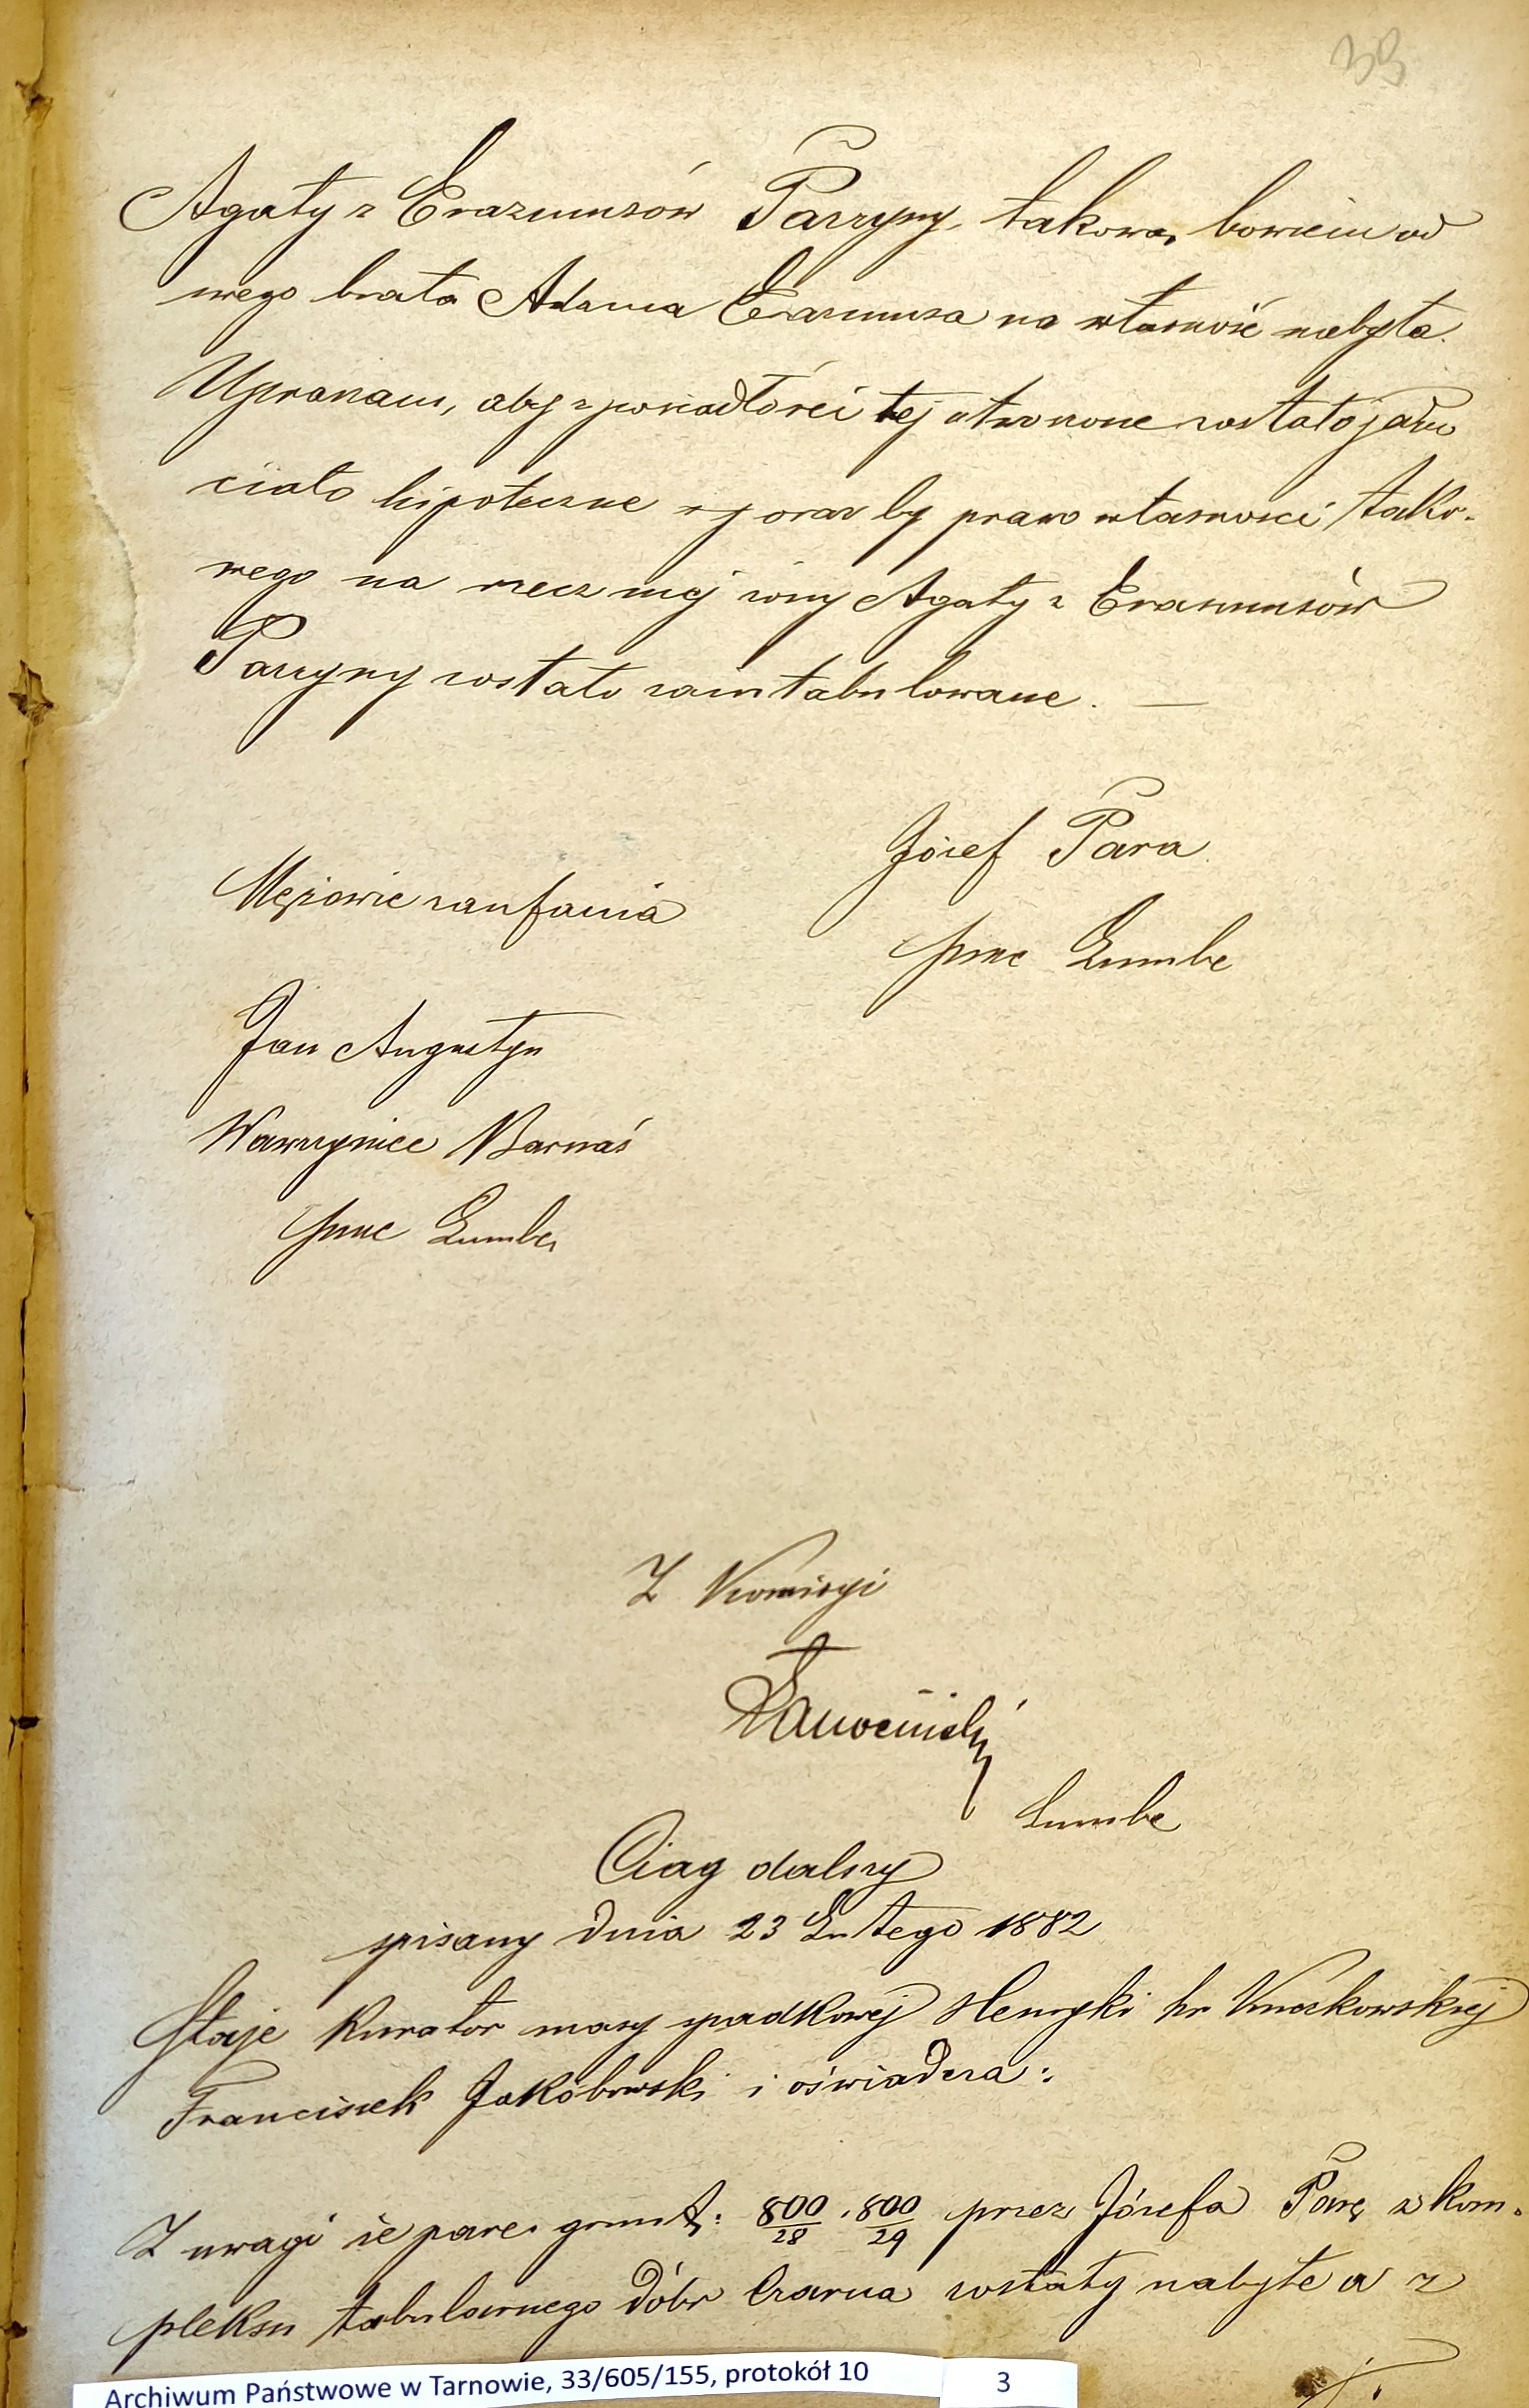 39
Agaty z Erazmusów Parzyny, takowa bowiem od
swego brata Adama Erazmusa na własność nabyła.
Upraszam, aby z posiadłości tej utworzone zostało jedno
ciało hipoteczne oraz by prawo własności tako-
wego na rzecz mej żony Agaty z Erasmusów
Parzyny zostało zaintabulowane. —
Józef Para
Mężowie zaufania
Lumbe
Jan Augustyn
Wawrzyniec Barnaś
Lumbe
Z Komisyi
Lumbe
Ciąg dalszy
spisany dnia 23 Lutego 1882
Staje Kurator masy spadkowej Henryki hr Kuczkowskiej
Franciszek Jakóbowski i oświadcza:
Z uwagi że parc. grunt: 800/28 . 800/29 przez Józefa Parę z kom-
pleksu tabularnego dóbr Czarna zostały nabyte a z
Archiwum Państwowe w Tarnowie, 33/605/155, protokół 10 3